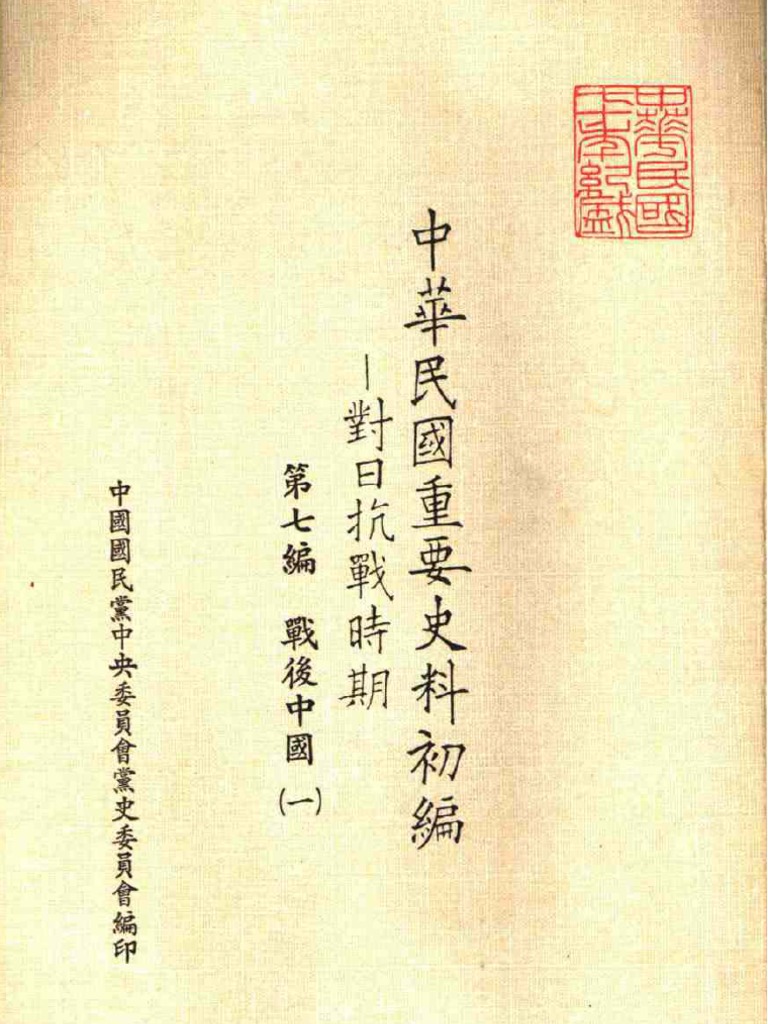 中華民國
七十年紀
中華民國重要史料初編
—對日抗戰時期
第七編 戰後中國(一)
中國國民黨中央委員會黨史委員會編印